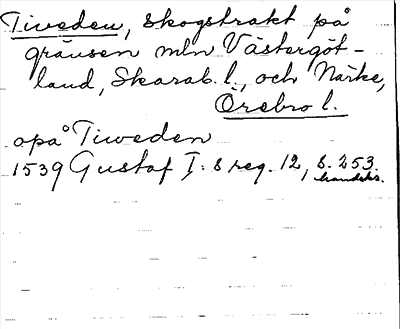 Tiveden, skogstrakt på
gränsen mln Västergöt-
land, Skarab. l., och Närke,
Örebro l.
opå Tiweden
1539 Gustaf I:s reg. 12, s. 253.
handskr.